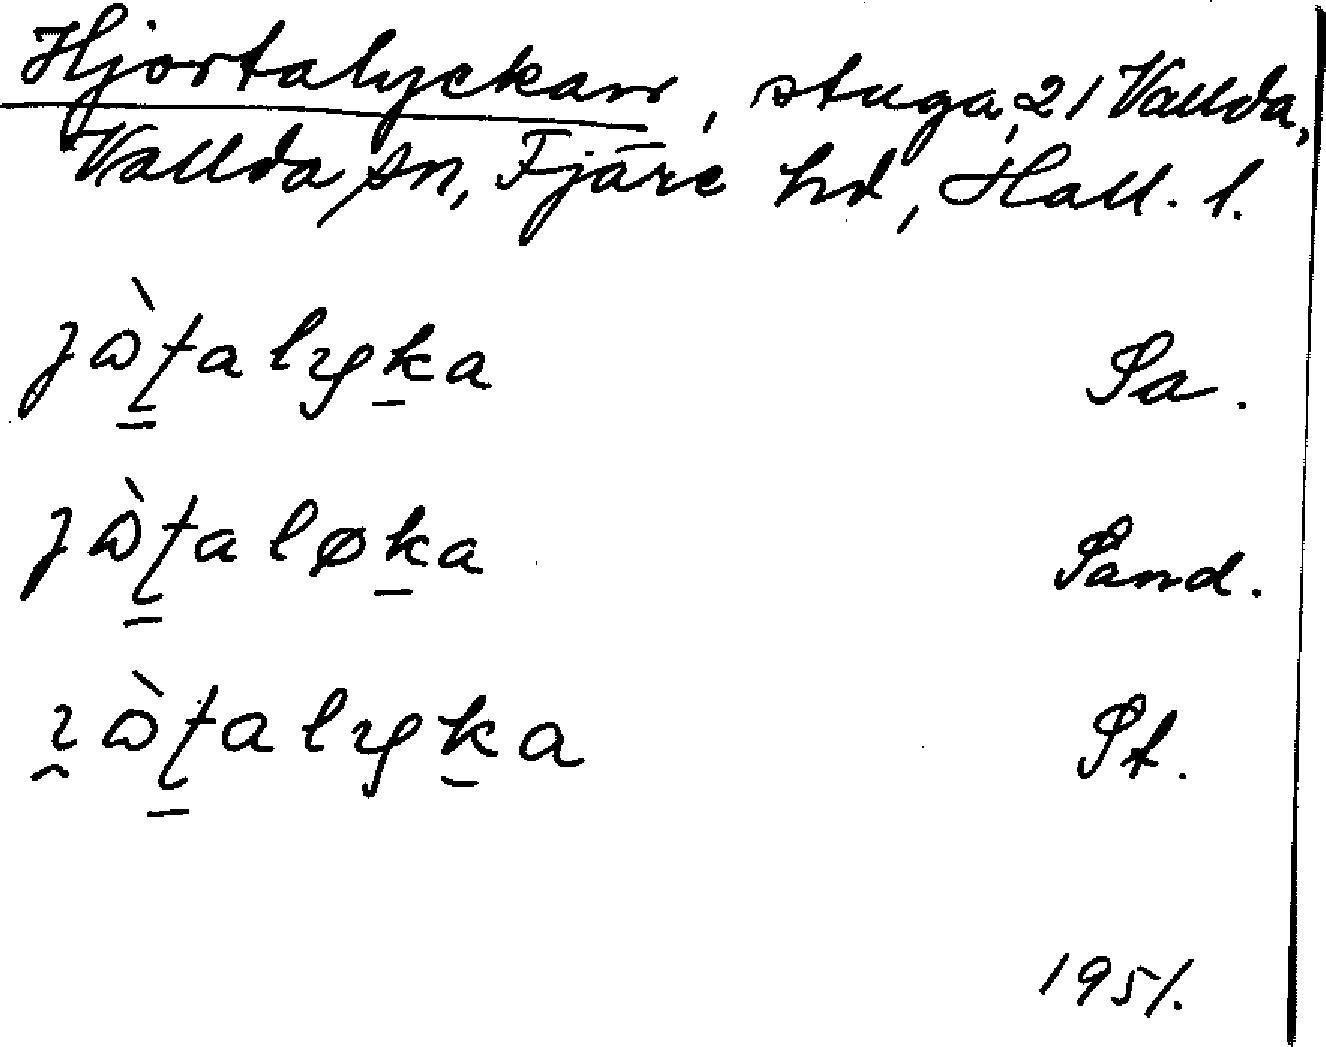 Hjortalyckan, stuga, 21 Vallda,
Vallda sn, Fjäre hd, Hall. l.
jɷ̀ʈalyka Sa.
jɷ̀ʈaløka Sand.
ɿ̯ɷ̀ʈalyka St.
1951.